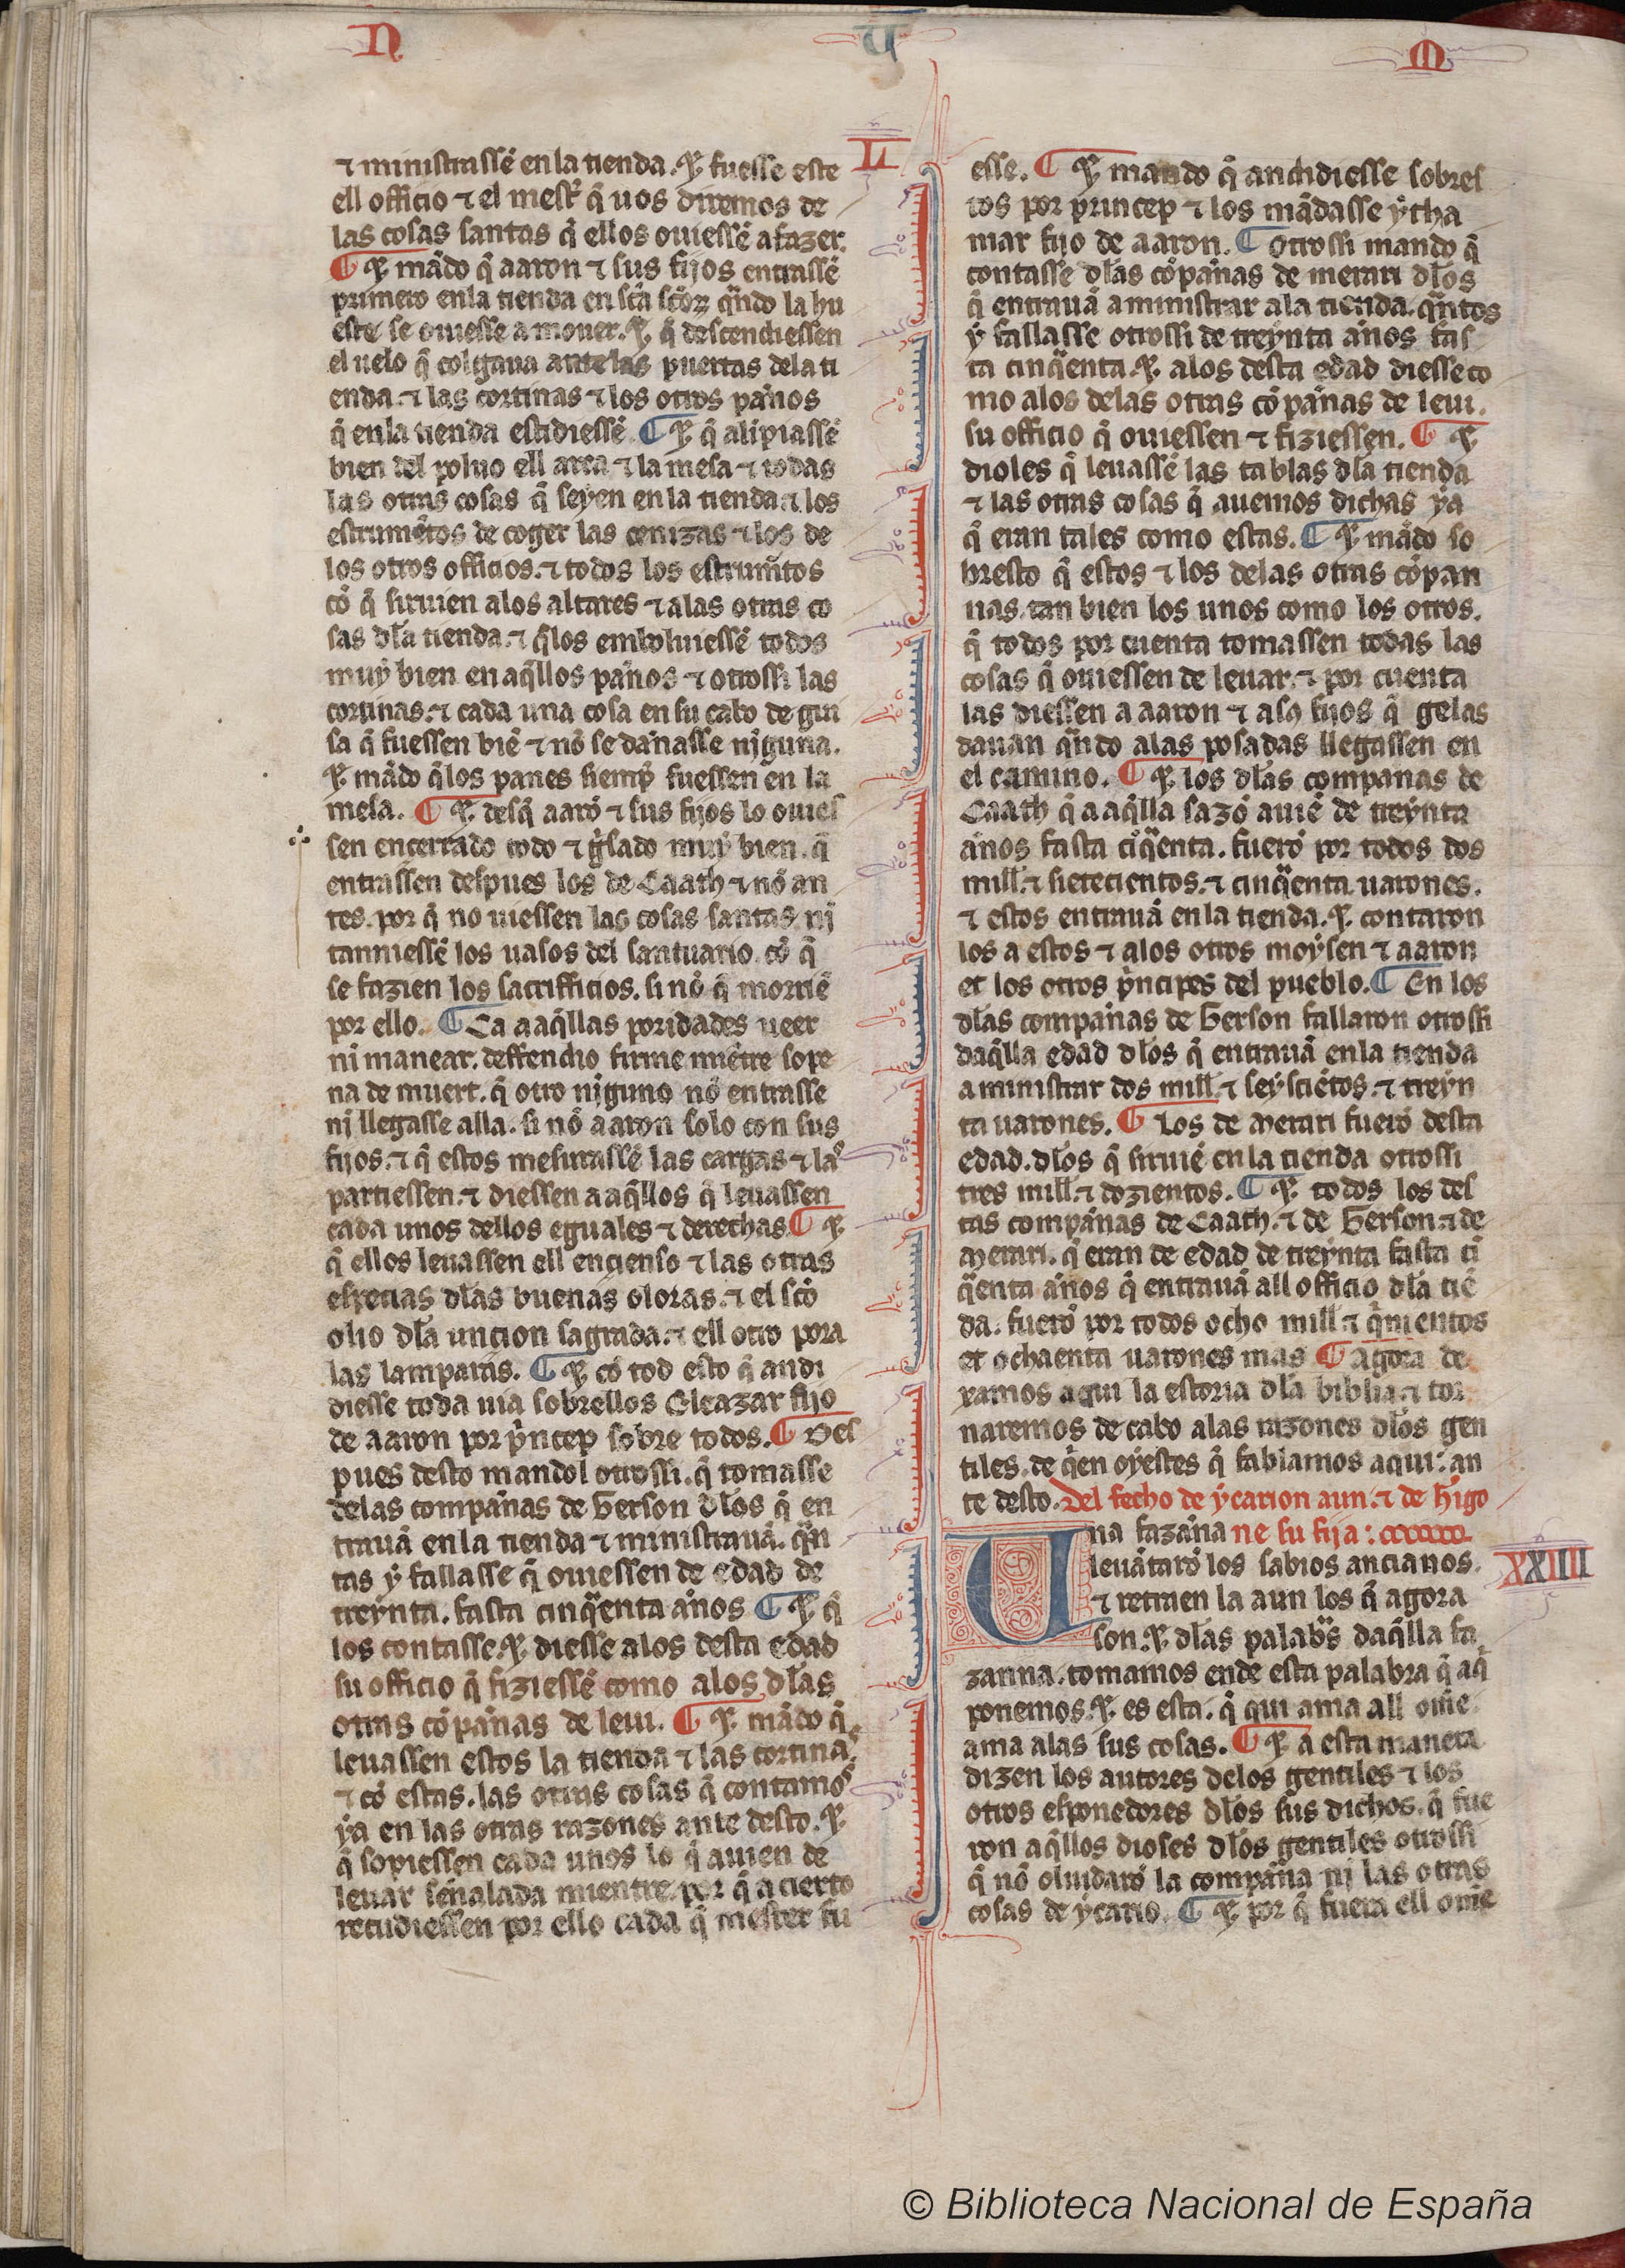 N U M
L
⁊ ministrassẽ en la tienda. ⁊ fuesse este
ell officio ⁊ el mest̃ q̃ uos diremos de
las cosas santas q̃ ellos ouiessẽ a fazer.
¶ ⁊ mãdo q̃ aaron ⁊ sus fijos entrassẽ
primero en la tienda en sc̃a sc̃oꝝ qñdo la hu
este se ouiesse a mouer. ⁊ q̃ descendiessen
el uelo q̃ colgaua antelas puertas dela ti
enda. ⁊ las cortinas ⁊ los otros pãnos
q̃ en la tienda estidiessẽ. ¶ ⁊ q̃ alĩpiassẽ
bien del poluo ell arca ⁊ la mesa ⁊ todas
las otras cosas q̃ seyen en la tienda. ⁊ los
estrumẽtos de coger las cenizas ⁊ los de
los otros officios. ⁊ todos los estrum̃tos
cõ q̃ siruien alos altares ⁊ alas otras co
sas dl̃a tienda. ⁊ q̃los emboluiessẽ todos
muy bien en aq̃llos pãnos ⁊ otrossi las
cortinas. ⁊ cada una cosa en su cabo de gui
sa q̃ fuessen biẽ ⁊ nõ se dãnasse nĩguna.
⁊ mãdo q̃los panes siemp̃ fuessen en la
mesa. ¶ ⁊ desq̃ aarõ ⁊ sus fijos lo ouies
sen encerrado todo ⁊ g̃sado muy bien. q̃
entrassen despues los de Caath ⁊ nõ an
tes. por q̃ no uiessen las cosas santas nj
tanniessẽ los uasos del santuario. cõ q̃
se fazien los sacrifficios. si nõ q̃ morriẽ
por ello. ¶ Ca a aq̃llas poridades ueer
ni manear. deffendio firme miẽtre sope
na de muert. q̃ otro nĩguno nõ entrasse
nj llegasse alla. si nõ aaron solo con sus
fijos. ⁊ q̃ estos mesurassẽ las cargas ⁊ las
partiessen. ⁊ diessen a aq̃llos q̃ leuassen
cada unos dellos eguales ⁊ derechas. ¶ ⁊
q̃ ellos leuassen ell encienso ⁊ las otras
especias dl̃as buenas oloras. ⁊ el sc̃o
olio dl̃a uncion sagrada. ⁊ ell otro pora
las lamparas. ¶ ⁊ cõ tod esto q̃ andi
diesse toda uia sobrellos Eleazar fijo
de aaron por p̃ncep sobre todos. ¶ Des
pues desto mandol otrossi. q̃ tomasse
delas compãnas de Gerson dl̃os q̃ en
trauã en la tienda ⁊ ministrauã. q̃n
tas y fallasse q̃ ouiessen de edad de
treynta. fasta cinq̃enta ãnos ¶ ⁊ q̃
los contasse. ⁊ diesse alos desta edad
su officio q̃ fiziessẽ como alos dl̃as
otras cõpãnas de leui. ¶ ⁊ mãdo q̃
leuassen estos la tienda ⁊ las cortinas.
⁊ cõ estas. las otras cosas q̃ contamos
ya en las otras razones ante desto. ⁊
q̃ sopiessen cada unos lo q̃ auien de
leuar sẽnalada mientre. por q̃ a cierto
recudiessen por ello cada q̃ mester fu
esse. ¶ ⁊ mando q̃ andidiesse sobres
tos por princep ⁊ los mãdasse ytha
mar fijo de aaron. ¶ Otrossi mando q̃
contasse dl̃as cõpãnas de merari dl̃os
q̃ entrauã a ministrar ala tienda. q̃ntos
y fallasse otrossi de treynta ãnos fas
ta cinq̃enta. ⁊ alos desta edad diesse co
mo alos delas otras cõpãnas de leui.
su officio q̃ ouiessen ⁊ fiziessen. ¶ ⁊
dioles q̃ leuassẽ las tablas dl̃a tienda
⁊ las otras cosas q̃ auemos dichas ya
q̃ eran tales como estas. ¶ ⁊ mãdo so
bresto q̃ estos ⁊ los delas otras cõpan
nas. tan bien los unos como los otros.
q̃ todos por cuenta tomassen todas las
cosas q̃ ouiessen de leuar. ⁊ por cuenta
las diessen a aaron ⁊ asꝯ fijos q̃ gelas
dauan qñdo alas posadas llegassen en
el camino. ¶ ⁊ los dl̃as companas de
Caath q̃ a aq̃lla sazõ auiẽ de treynta
ãnos fasta cĩq̃enta. fuerõ por todos dos
mill. ⁊ sietecientos. ⁊ cinq̃enta uarones.
⁊ estos entrauã en la tienda. ⁊ contaron
los a estos ⁊ alos otros moysen ⁊ aaron
et los otros p̃ncipes del pueblo. ¶ En los
dl̃as compãnas de Gerson fallaron otrossi
daq̃lla edad dl̃os q̃ entrauã en la tienda
a ministrar dos mill. ⁊ seysciẽtos. ⁊ treyn
ta uarones. ¶ Los de merari fuerõ desta
edad. dl̃os q̃ siruiẽ en la tienda otrossi
tres mill. ⁊ dozientos. ¶ ⁊ todos los des
tas compãnas de Caath. ⁊ de Gerson. ⁊ de
merari. q̃ eran de edad de treynta fasta cĩ
q̃enta ãnos q̃ entrauã all officio dl̃a tiẽ
da. fuerõ por todos ocho mill. ⁊ q̃nientos
et ochaenta uarones mas ¶ agora de
xamos aqui la estoria dl̃a biblia. ⁊ tor
naremos de cabo alas razones dl̃os gen
tiles. de q̃en oyestes q̃ fablamos aqui. an
te desto. Del fecho de ycarion aun. ⁊ de higo
Una fazãna ne su fija:
XXIIII
leuãtarõ los sabios ancianos.
⁊ retraen la aun los q̃ agora
son. ⁊ dl̃as palab̃s daq̃lla fa
zanna. tomamos ende esta palabra q̃ aq̃
ponemos. ⁊ es esta. q̃ qui ama all ome
ama alas sus cosas. ¶ ⁊ a esta manera
dizen los autores delos gentiles ⁊ los
otros esponedores dl̃os sus dichos. q̃ fue
ron aq̃llos dioses dl̃os gentiles otrossi
q̃ nõ oluidarõ la compãna nj las otras
cosas de ycario. ¶ ⁊ por q̃ fuera ell ome
© Biblioteca Nacional de España